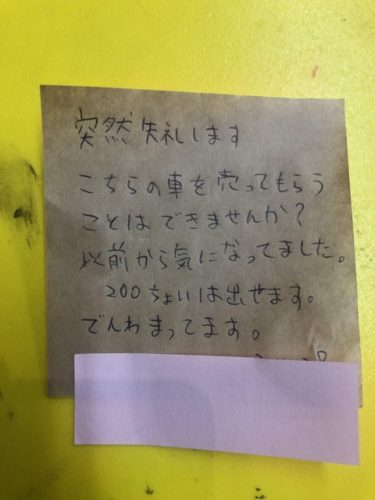 突然失礼します
こちらの車を売ってもらう
ことはできませんか?
以前から気になってました。
200ちょいは出せます。
でんわまってます。